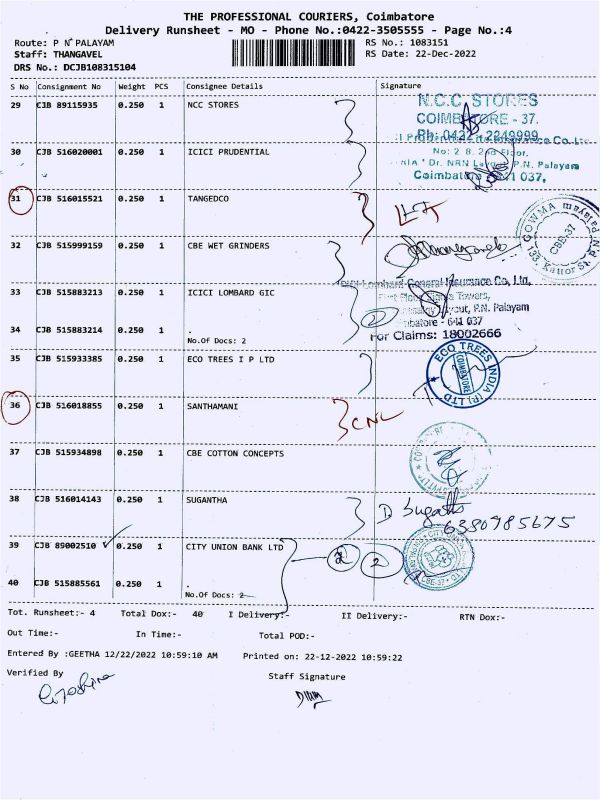 THE PROFESSIONAL COURIERS, Coimbatore
Delivery Runsheet - MO - Phone No.:0422-3505555 - Page No.:4
Route: P N PALAYAM
RS No.: 1083151
Staff: THANGAVEL
RS Date: 22-Dec-2022
DRS No.: DCJB108315104
S No Consignment No Weight PCS Consignee Details Signature
29 CJB 89115935 0.250 1 NCC STORES
N.C.C. STORES
COIMBATORE - 37.
Ph: 0422 2249999
30 CJB 516020001 0.250 1 ICICI PRUDENTIAL
No: 2 8, 2nd Floor,
Dr. NRN P.N. Palayam
Coimbatore 641 037,
31 CJB 516015521 0.250 1 TANGEDCO
32 CJB 515999159 0.250 1 CBE WET GRINDERS
GOWMA
CBE-37
33 CJB 515883213 0.250 1 ICICI LOMBARD GIC
Lombard General Insurance Co, Ltd,
Towers,
P.N. Palayam
641 037
For Claims: 18002666
2
34 CJB 515883214 0.250 1 .
No.Of Docs: 2
35 CJB 515933385 0.250 1 ECO TREES I P LTD
ECO TREES INDIA (P) LTD
COIMBATORE
36 CJB 516018855 0.250 1 SANTHAMANI
CNL
37 CJB 515934898 0.250 1 CBE COTTON CONCEPTS
38 CJB 516014143 0.250 1 SUGANTHA
D. Sugantha
6380985675
39 CJB 89002510 0.250 1 CITY UNION BANK LTD
2 2
CBE-37
40 CJB 515885561 0.250 1 .
No.Of Docs: 2
Tot. Runsheet:- 4 Total Dox:- 40 I Delivery:- II Delivery:- RTN Dox:-
Out Time:- In Time:- Total POD:-
Entered By :GEETHA 12/22/2022 10:59:10 AM Printed on: 22-12-2022 10:59:22
Verified By Staff Signature